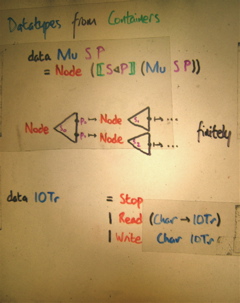 Datatypes from Containers
data Mu S P
= Node (⟦S◁P⟧ (Mu S P))
Node S₀ P₁ ↦ Node S₁ ↦ ...
P₂ ↦ Node S₂ ↦ ... finitely
data IOTr = Stop
| Read (Char → IOTr)
| Write Char IOTr